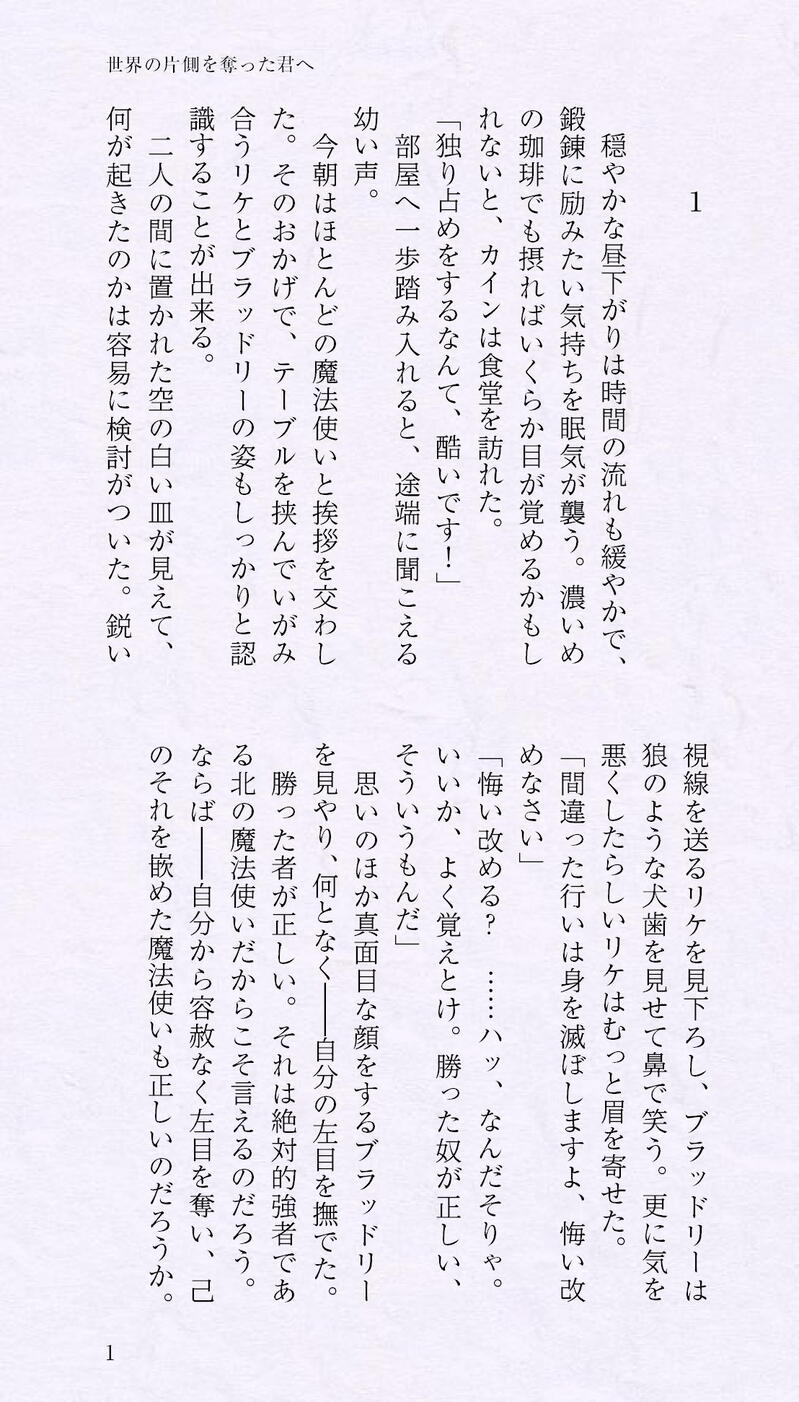 世界の片側を奪った君へ
1
穏やかな昼下がりは時間の流れも緩やかで、
鍛錬に励みたい気持ちを眠気が襲う。濃いめ
の珈琲でも摂ればいくらか目が覚めるかもし
れないと、カインは食堂を訪れた。
「独り占めをするなんて、酷いです！」
部屋へ一歩踏み入れると、途端に聞こえる
幼い声。
今朝はほとんどの魔法使いと挨拶を交わし
た。そのおかげで、テーブルを挟んでいがみ
合うリケとブラッドリーの姿もしっかりと認
識することが出来る。
二人の間に置かれた空の白い皿が見えて、
何が起きたのかは容易に検討がついた。鋭い
視線を送るリケを見下ろし、ブラッドリーは
狼のような犬歯を見せて鼻で笑う。更に気を
悪くしたらしいリケはむっと眉を寄せた。
「間違った行いは身を滅ぼしますよ、悔い改
めなさい」
「悔い改める？　……ハッ、なんだそりゃ。
いいか、よく覚えとけ。勝った奴が正しい、
そういうもんだ」
思いのほか真面目な顔をするブラッドリー
を見やり、何となく――自分の左目を撫でた。
勝った者が正しい。それは絶対的強者であ
る北の魔法使いだからこそ言えるのだろう。
ならば――自分から容赦なく左目を奪い、己
のそれを嵌めた魔法使いも正しいのだろうか。
1